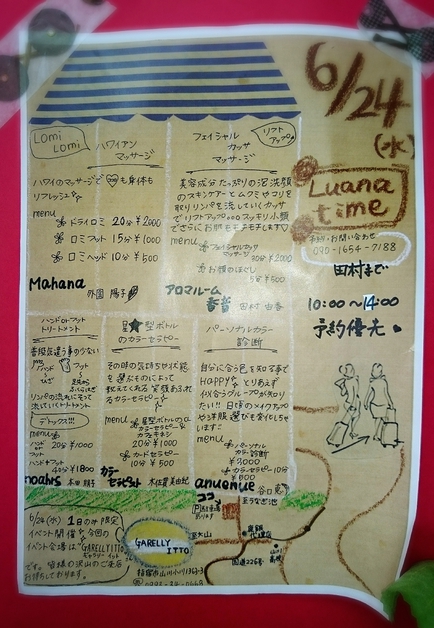 6/24
(水)
Luana
time
予約・お問い合わせ
090-1654-7188
田村まで
10:00〜14:00
予約優先
Lomi
Lomi
ハワイアン
マッサージ
ハワイのマッサージで心も身体も
リフレッシュ
menu
ドライロミ 20分 ¥2000
ロミフット 15分 ¥1000
ロミヘッド 10分 ¥500
Mahana
外園 陽子
フェイシャル
カッサ
マッサージ
リフト
アップ
美容成分たっぷりの泡洗顔
のスキンケアとムクミやコリを
取りリンパを流していくカッサ
でリフトアップ スッキリ小顔
menu
フェイシャルカッサ
マッサージ
30分 ¥2000
お顔のほぐし
5分 ¥500
アロマルーム
香音 田村 由香
ハンドorフット
トリートメント
普段気遣う事の少ない
ハンド
フット
リンパの流れにそって
流していくトリートメント
デトックス!!!
menu
ハンド 20分 ¥1000
フット
ハンド+フット
40分 ¥1800
noahs 本田 順子
星★型ボトル
のカラーセラピー
その時の気持ちや状態
を選ぶものによって
menu
星型ボトルの
カラーセラピー
20分 ¥1000
カードセラピー
10分 ¥500
カラー
セラピスト 木佐貫 美由紀
パーソナルカラー
診断
自分に合う色を知る事で
HAPPYに とりあえず
似合うグループが知り
たい!! 日頃のメイクアップ
や洋服選びも変化しちゃ
います!!
menu
パーソナル
カラー診断
¥3000
カラーセラピー 10分
¥800
anuenue 谷口 恵
6/24(水) 1日のみ限定
イベント開催 今回の
イベント会場は"GARELLY ITTO"
です。 皆様の沢山のご来店
お待ちしております。
GARELLY
ITTO
ココ
至うなぎ池
至大山
国道226号
指宿市山川小川1363-3